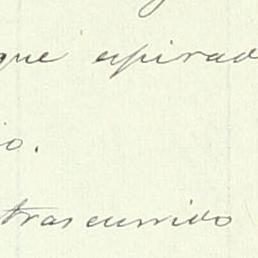 que espirad
io.
trascurrido